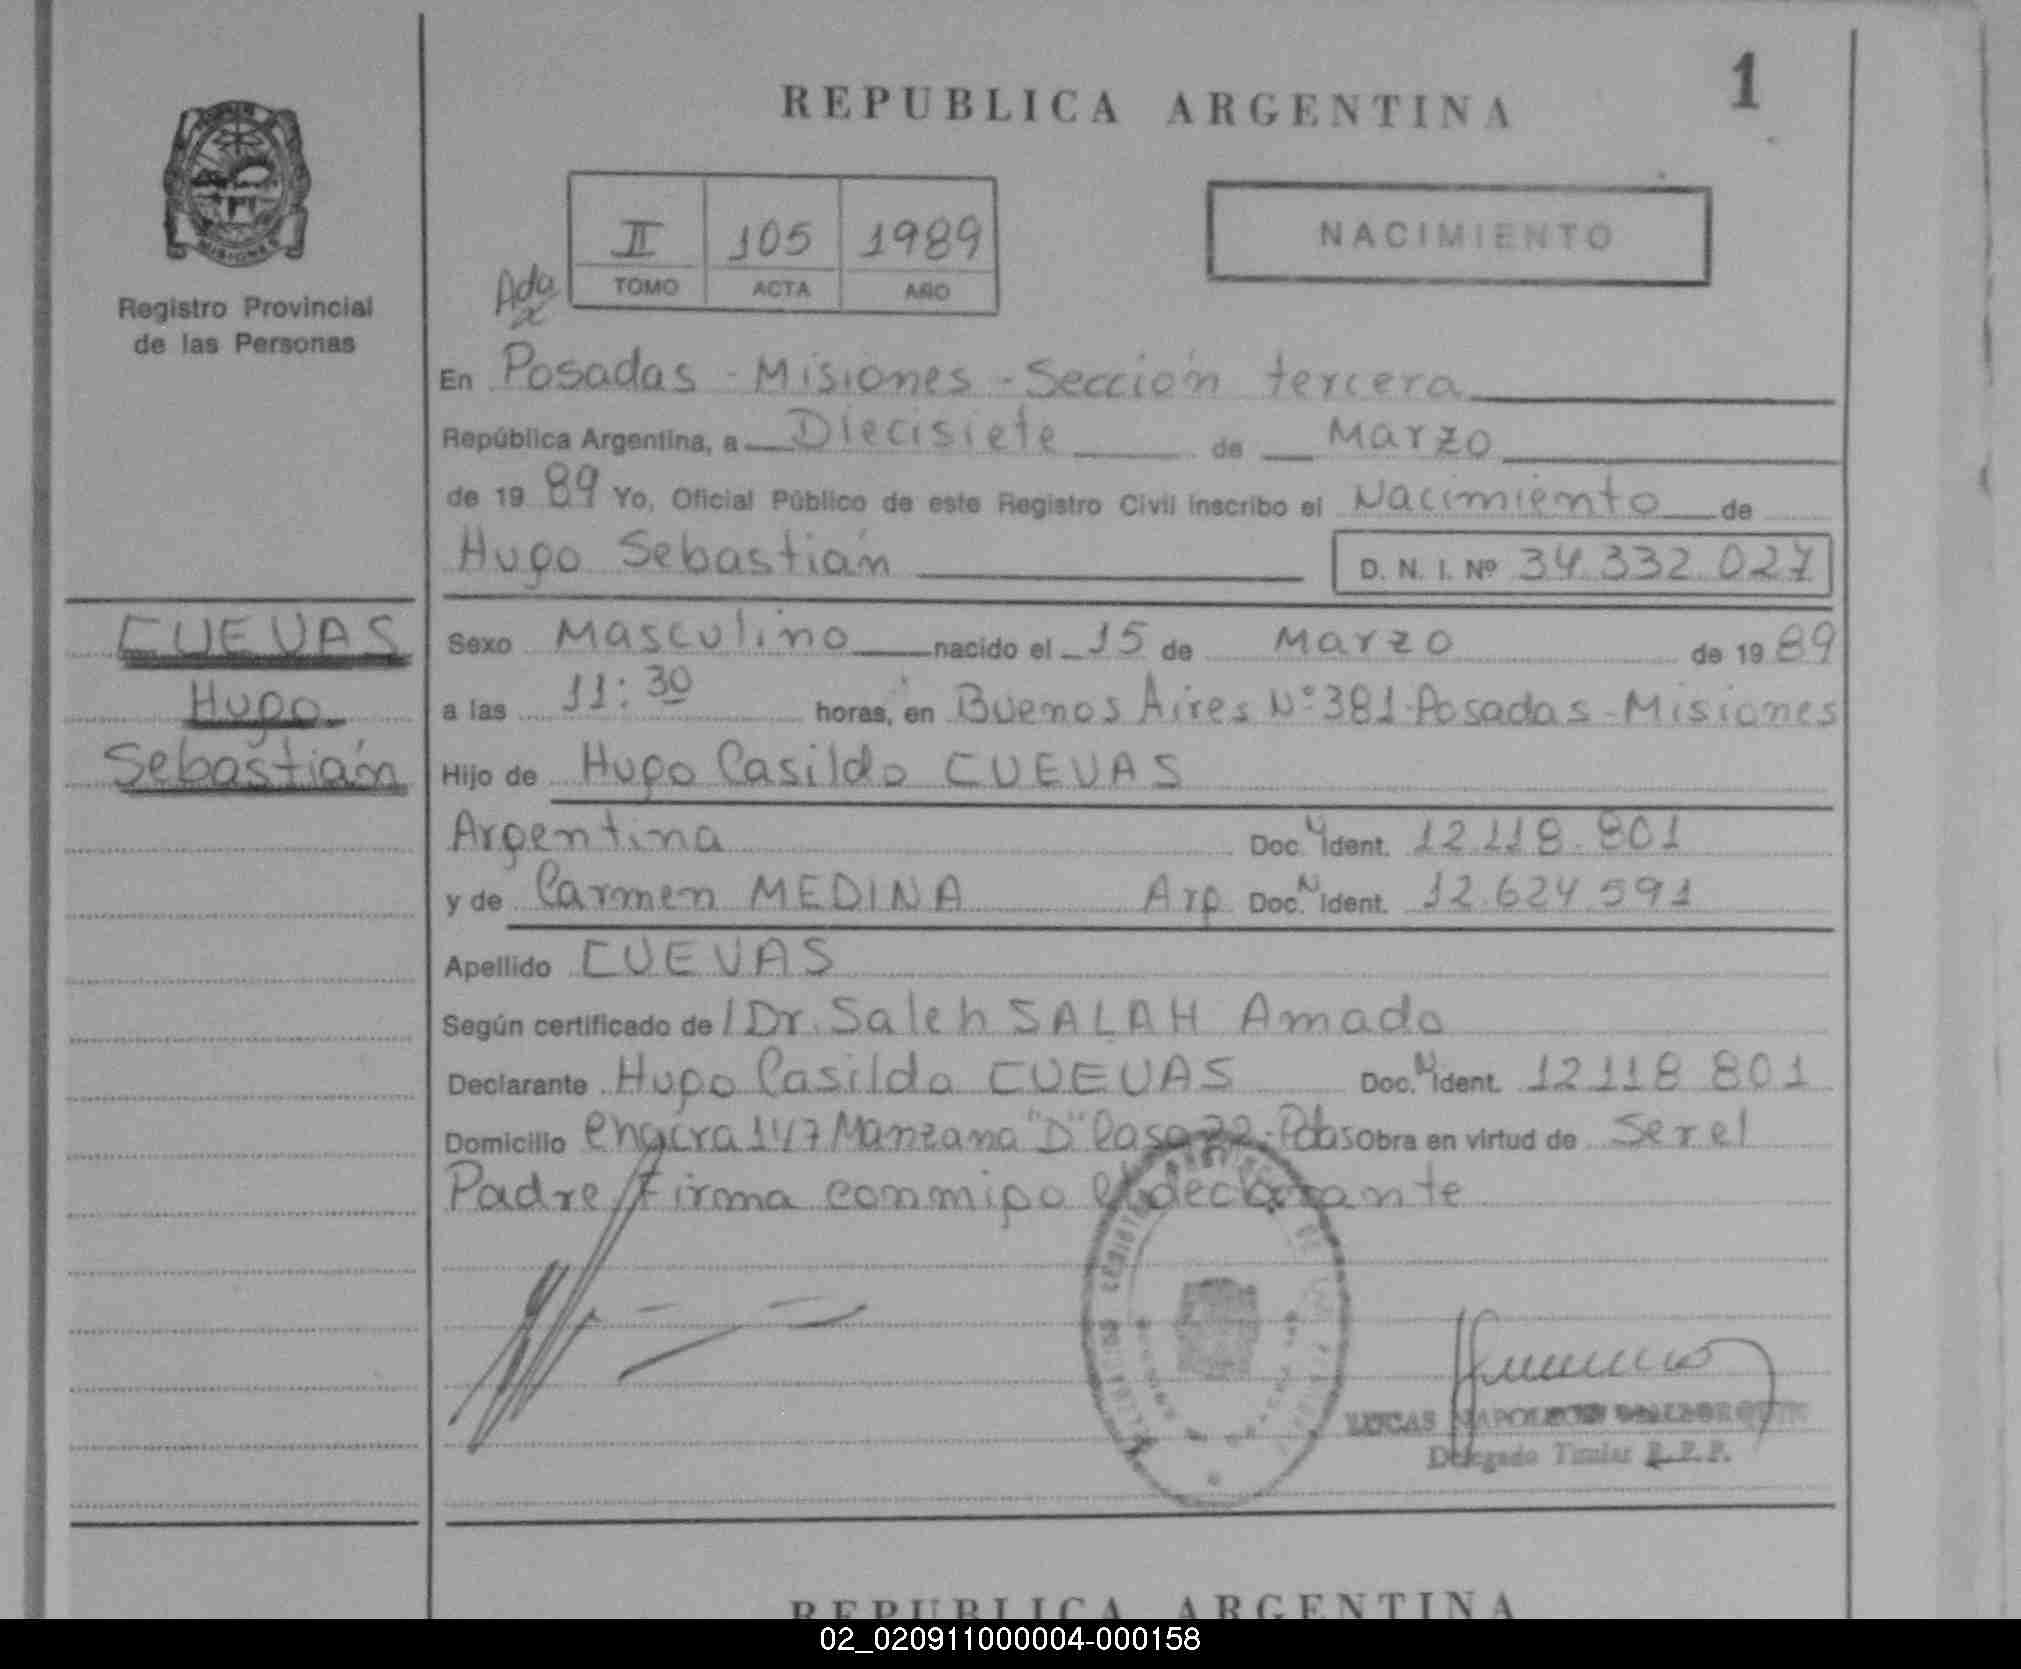 REPUBLICA ARGENTINA
1
MISIONES
Registro Provincial
de las Personas
II 105 1989
TOMO ACTA AÑO
NACIMIENTO
En Posadas - Misiones - Sección tercera
República Argentina, a Diecisiete de Marzo
de 19 89 Yo, Oficial Público de este Registro Civil inscribo el Nacimiento de
Hugo Sebastián D. N. I. Nº 34.332.027
CUEVAS
Hugo
Sebastián
Sexo Masculino nacido el 15 de Marzo de 19 89
a las 11:30 horas, en Buenos Aires Nº 381-Posadas-Misiones
Hijo de Hugo Casildo CUEVAS
Argentina Doc. N Ident. 12.118.801
y de Carmen MEDINA Arg Doc. N Ident. 12.624.591
Apellido CUEVAS
Según certificado de / Dr. Saleh SALAH Amado
Declarante Hugo Casildo CUEVAS Doc. N Ident. 12118801
Domicilio Chacra 147 Manzana "D" Casa Pdas Obra en virtud de Ser el
Padre firma conmigo el declarante
LUCAS NAPOLEON
Delegado Titular R.P.P.
REPUBLICA ARGENTINA
02_020911000004-000158